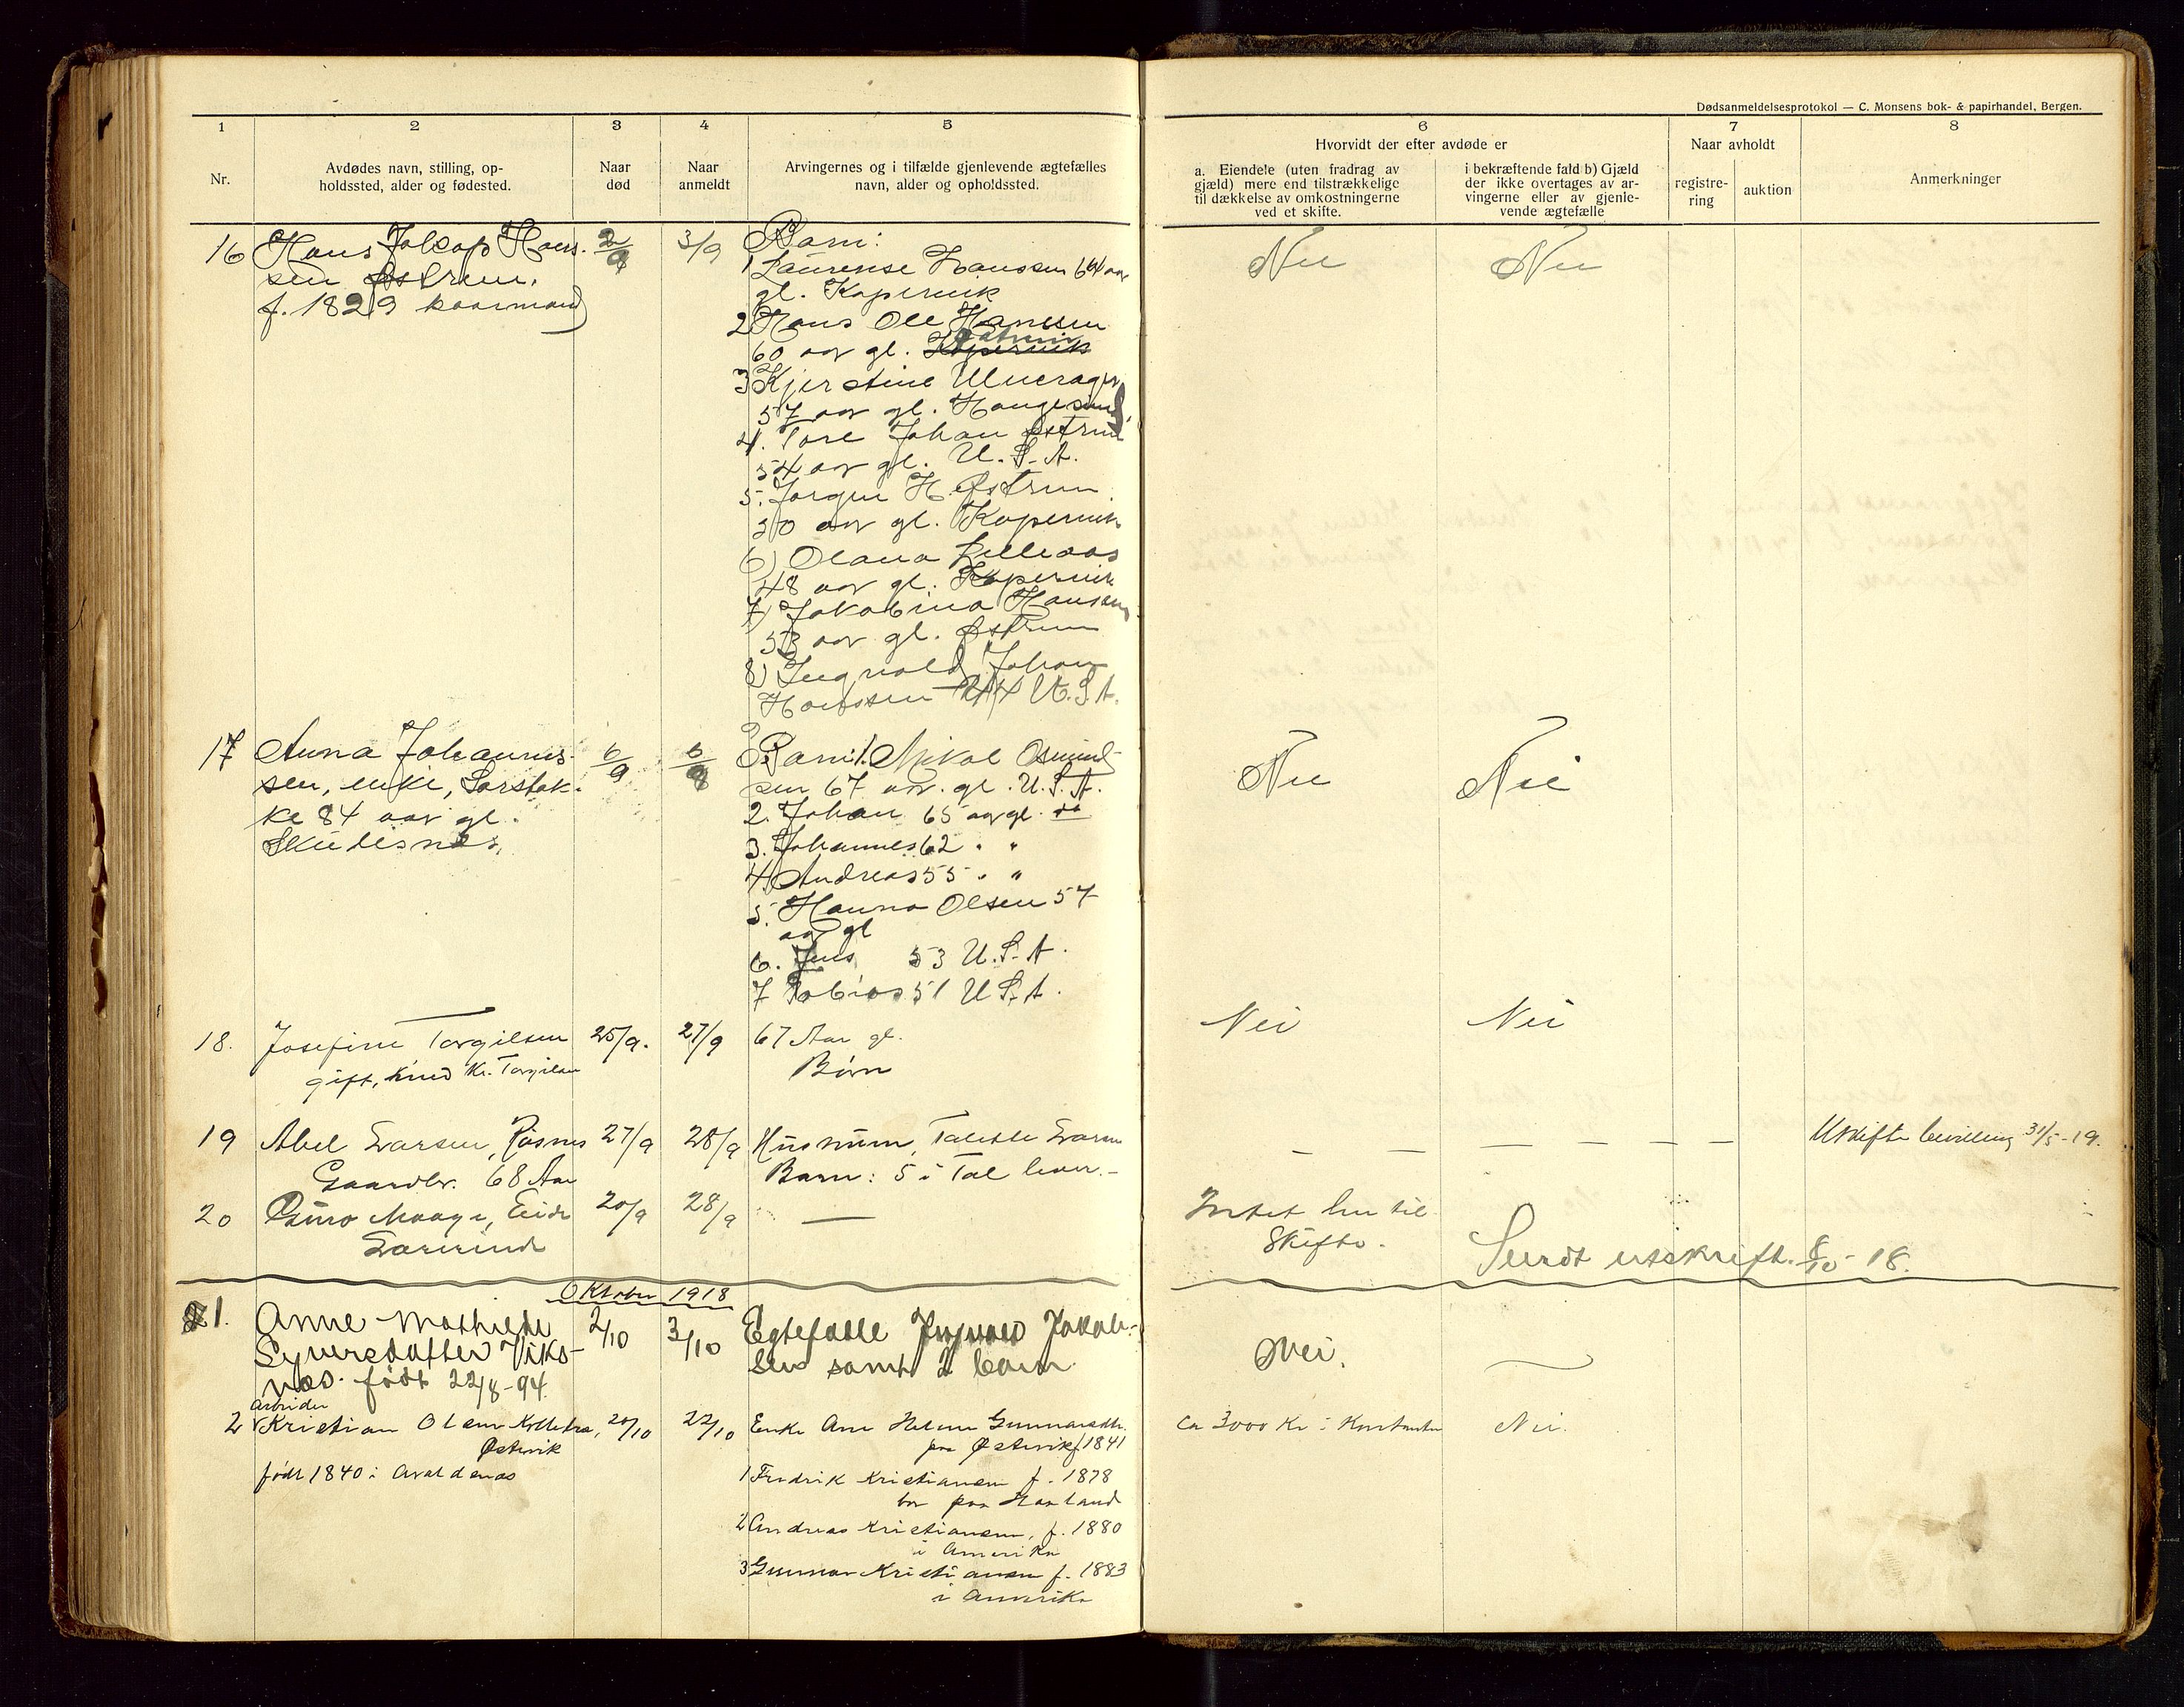 Dødsanmeldelsesprotokol — C. Monsens bok- & papirhandel, Bergen.
1 2 3 4 5 6 7 8
Nr.
Avdødes navn, stilling, op-
holdssted, alder og fødested.
Naar
død
Naar
anmeldt
Arvingernes og i tilfælde gjenlevende ægtefælles
navn, alder og opholdssted.
Hvorvidt der efter avdøde er
a. Eiendele (uten fradrag av
gjæld) mere end tilstrækkelige
til dækkelse av omkostningerne
ved et skifte.
i bekræftende fald b) Gjæld
der ikke overtages av ar-
vingerne eller av gjenle-
vende ægtefælle
Naar avholdt
registre-
ring
auktion
Anmerkninger
16 Hans Jakop Hans-
sen Østrem.
f. 1829 kaarmand
2/9
3/9
Barn:
1 Laurense Hanssen 64 aar
gl. Kopervik
2 Hans Ole Hanssen
60 aar gl. Kopervik Østrem
3 Kjerstine
57 aar gl. Haugesund.
4. Tore Johan Østrem
54 aar gl. U.S.A.
5. Jorgen H. Østrem
50 aar gl. Kopervik
6) Olava Lilleaas
48 aar gl. Kopervik
7) Jakobina Hanssen
53 aar gl. Østrem
8) Ingvald Johan
Hanssen 44 U.S.A.
Nei
Nei
17 Anna Johannes-
sen, enke, Sørstok-
ke 84 aar gl.
Skudesnes.
6/9
6/9
Barn: 1. Mikal Osmund-
sen 67 aar. gl. U.S.A.
2. Johan 65 aar gl. do
3. Johannes 62 " "
4. Andreas 55 " "
5. Hanna Olsen 57
aar gl
6. Jens 53 U.S.A.
7 Tobias 51 U.S.A.
Nei
Nei
18. Josefine Torgilsen
gift, med Kr. Torgilsen
25/9.
27/9
67 Aar gl.
Børn
Nei
Nei
19 Abel Larsen,
Gaardbr. 68 Aar
27/9
28/9
Husmum, Larsen
Barn: 5 i Tal lever.-
— — — — — —
Uskifte bevilling 31/5-19.
20 Guro Maage, Eide
20/9
28/9
—
Intet her til
Skifte.
Sendt utskrift. 8/10-18.
Oktober 1918
1. Anne Mathilde
Syversdatter Viks-
nes. født 22/8-94.
2/10
3/10
Egtefælle Ingvald Jakob-
sen samt 2 barn.
Nei.
—
2 arbeider
Kristian Olsen,
Østevik
født 1840 i Avaldsnes
20/10
22/10
Enke Ane Helene Gunnarsdtr.
paa Østevik f. 1841
1 Fredrik Kristiansen f. 1878
bor paa Haaland
2 Andreas Kristiansen, f. 1880
i Amerika
3 Gunnar Kristiansen f. 1883
i Amerika
ca 3000 Kr i Kontanter
Nei.